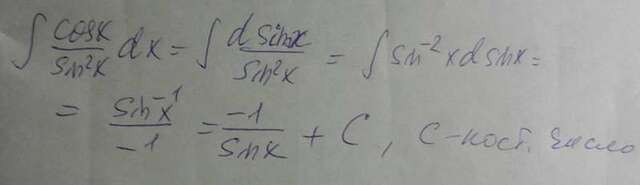 ∫ cosx/sin²x dx = ∫ d sinx/sin²x = ∫ sin⁻²x d sinx =
= sin⁻¹x/-1 = -1/sinx + C, C-пост. число